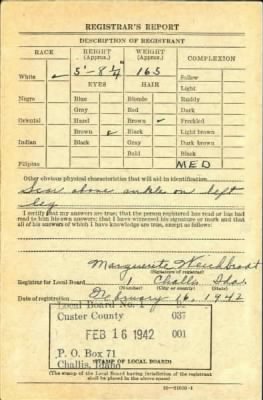 REGISTRAR'S REPORT
DESCRIPTION OF REGISTRANT
RACE HEIGHT (Approx.) WEIGHT (Approx.) COMPLEXION
White ✓ 5'-8 1/2" 165 Sallow
EYES HAIR Light
Negro Blue Blonde Ruddy
Gray Red Dark
Oriental Hazel Brown ✓ Freckled
Brown ✓ Black Light brown
Indian Black Gray Dark brown
Bald Black
Filipino MED
Other obvious physical characteristics that will aid in identification.
Scar above ankle on left
leg
I certify that my answers are true; that the person registered has read or has had
read to him his own answers; that I have witnessed his signature or mark and that
all of his answers of which I have knowledge are true, except as follows:
Marguerite
(Signature of registrar)
Registrar for Local Board Challis Idaho
(Number) (City or county) (State)
Date of registration February 16, 1942
Local Board No. 1
Custer County 037
FEB 16 1942 001
P. O. Box 71
Challis, Idaho
(STAMP OF LOCAL BOARD)
(The stamp of the Local Board having jurisdiction of the registrant
shall be placed in the above space)